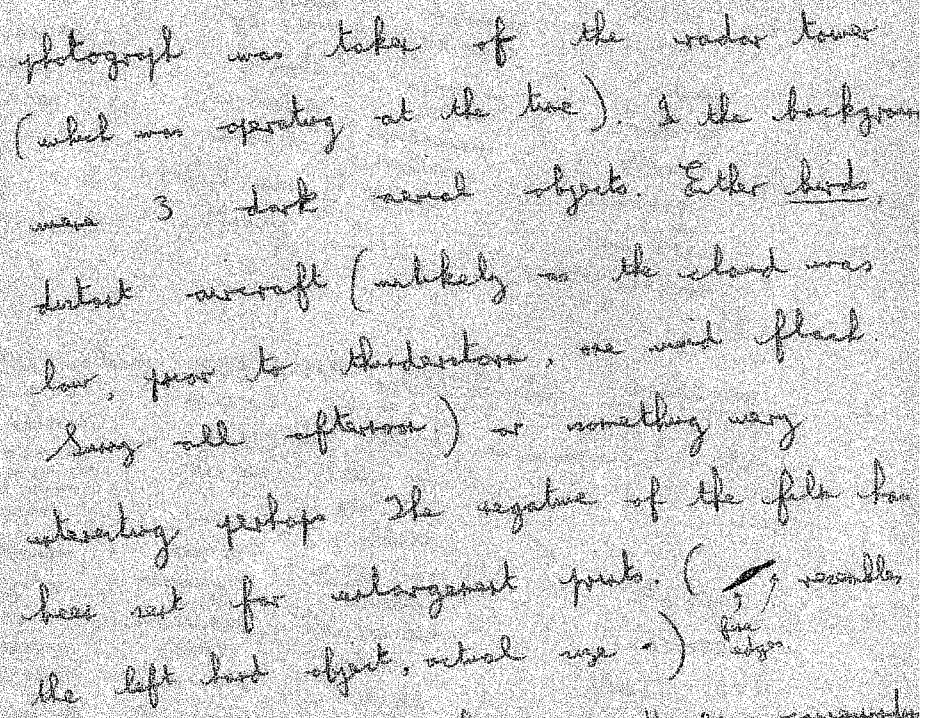 photograph was taken of the radar tower
(which was operating at the time). In the backgroun
were 3 dark aerial objects. Either birds,
distant aircraft (unlikely as the cloud was
low, prior to thunderstorm, one vivid flash.
Sunny all afternoon) or something very
interesting perhaps The negative of the film has
been sent for enlargement prints. ( resembles
fine
edges
the left hand object, actual size - )